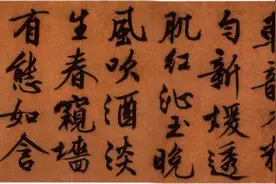 勻新煖透
肌紅沁玉晚
風吹酒淡
生春窺墻
有態如含